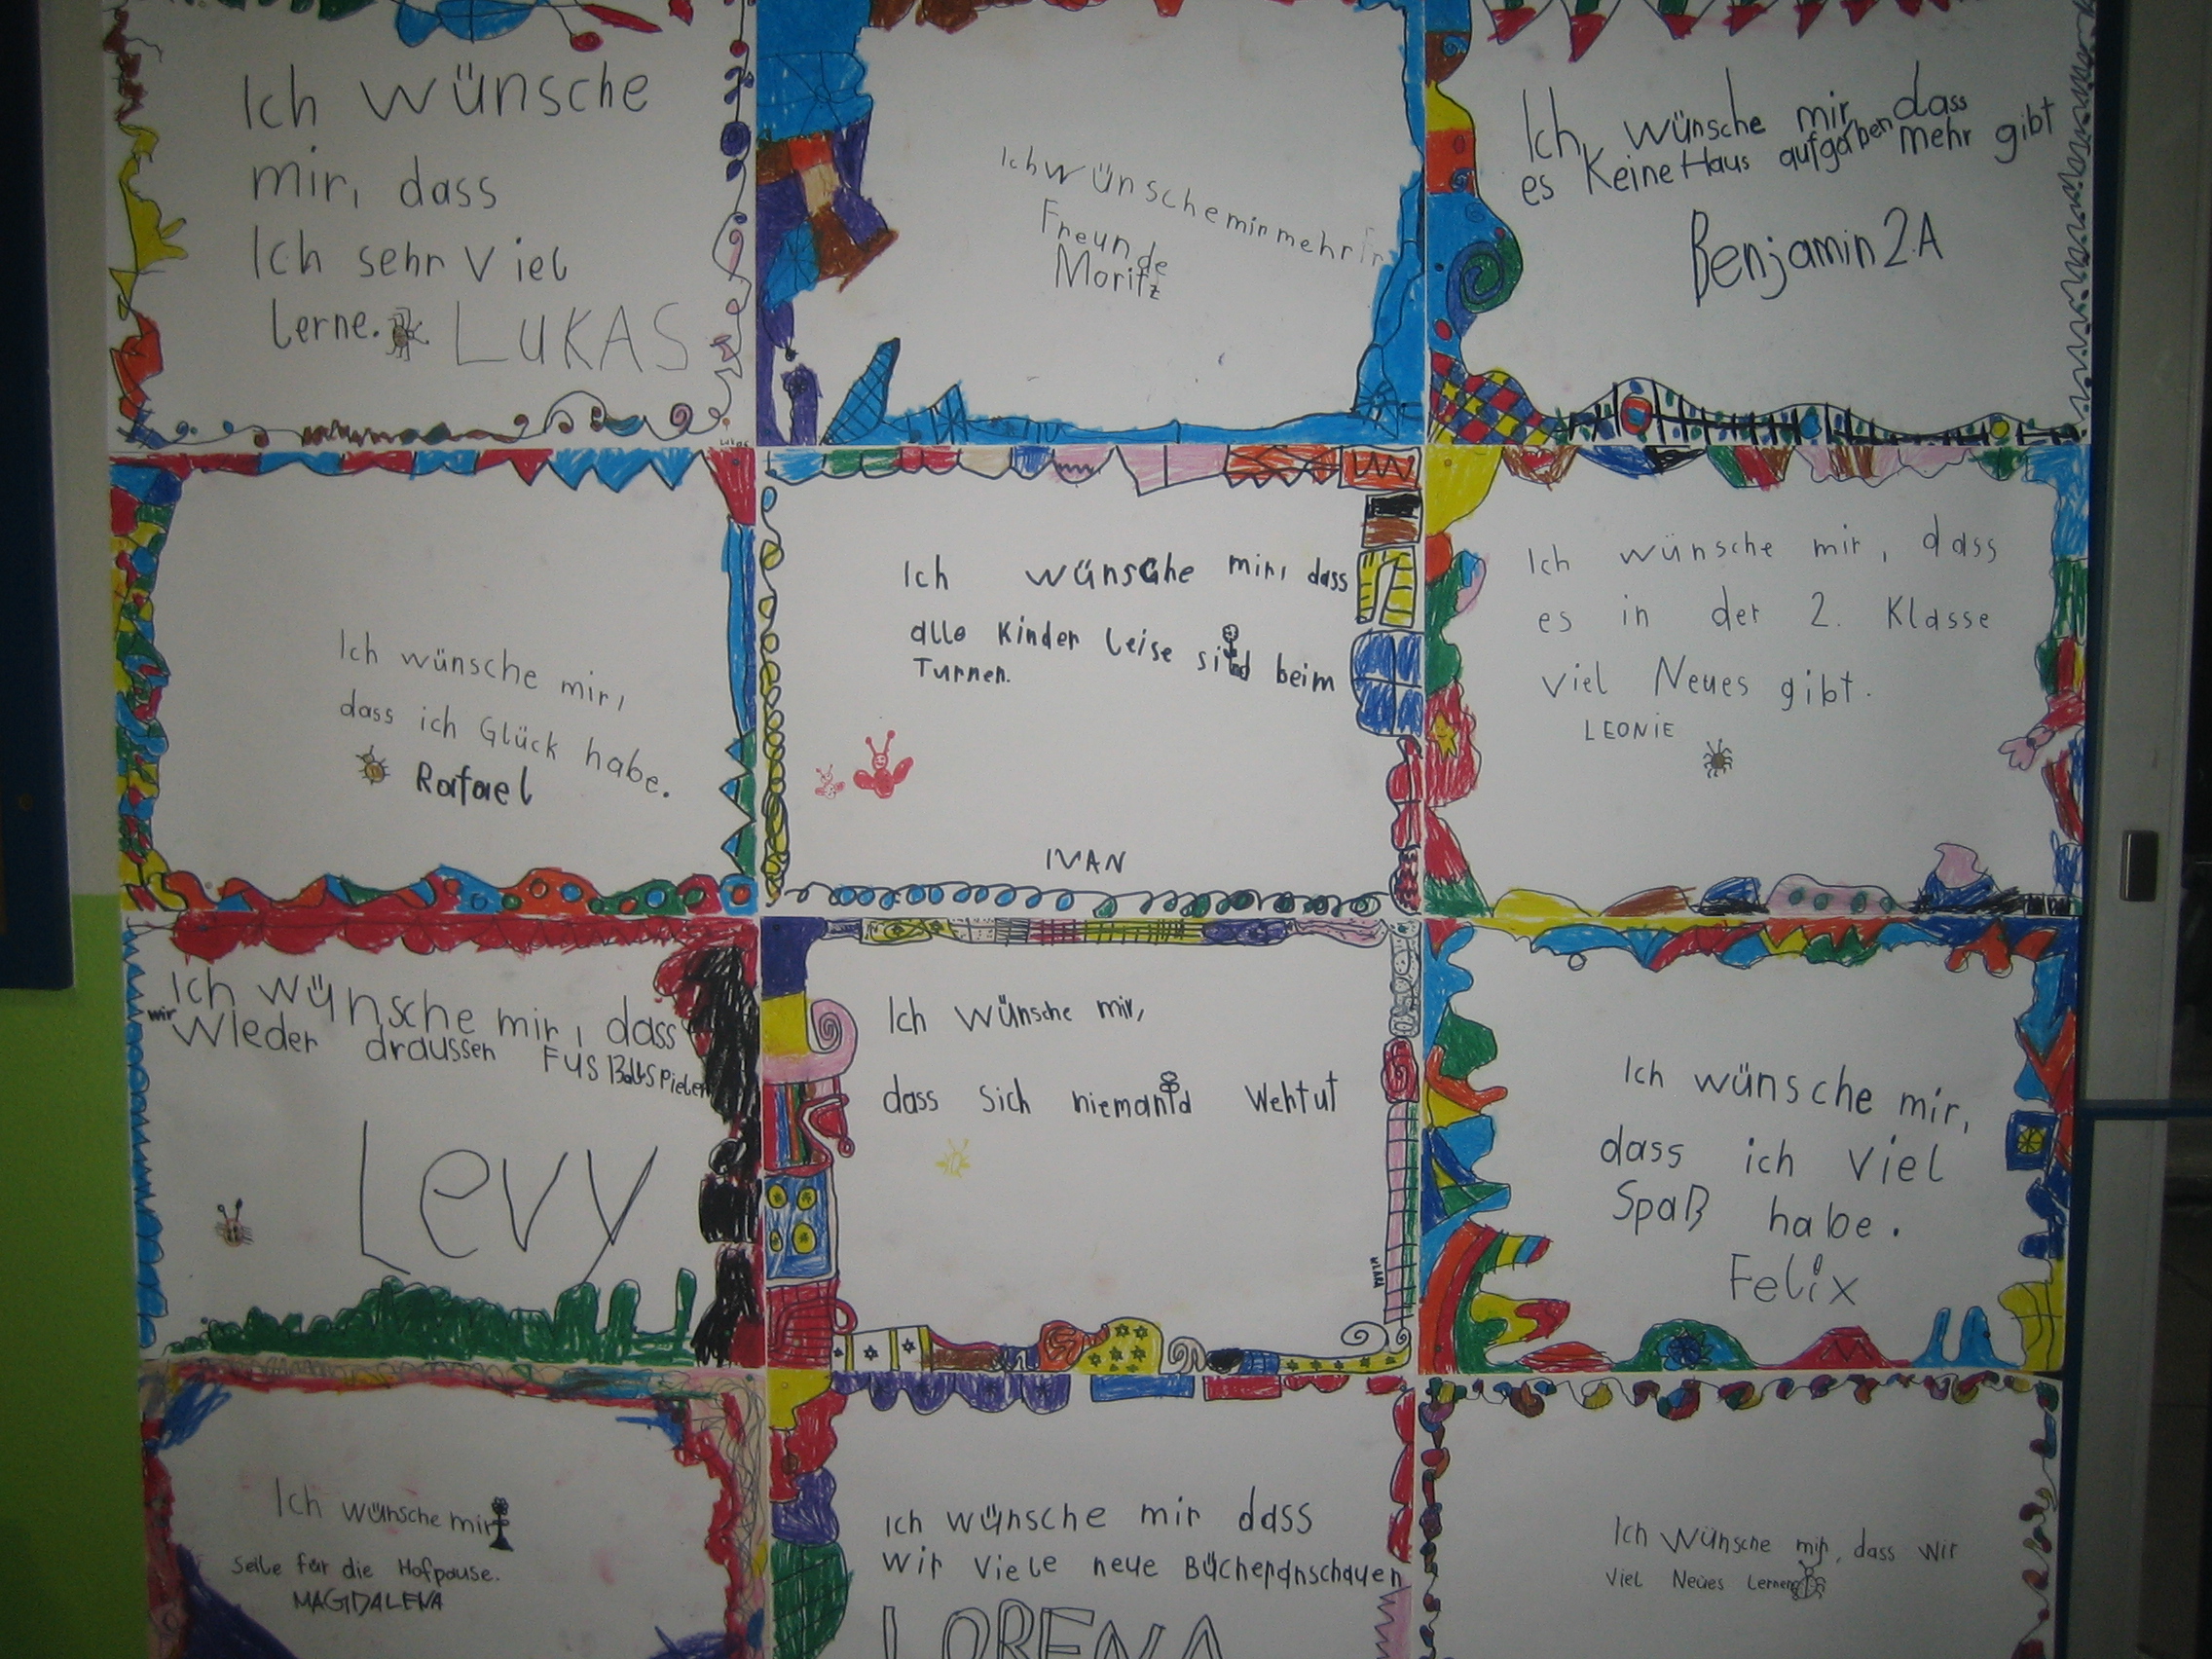 Ich wünsche
mir, dass
Ich sehr viel
lerne.
LUKAS
Lukas
Ich wünsche mir mehr
Freunde
Moritz
Ich wünsche mir, dass
es keine Haus aufgaben mehr gibt
Benjamin 2.A
Ich wünsche mir,
dass ich Glück habe.
Rafael
Ich wünsche mir, dass
alle Kinder leise sind beim
Turnen.
IVAN
Ich wünsche mir, dass
es in der 2. Klasse
viel Neues gibt.
LEONIE
Ich wünsche mir, dass
wir wieder draussen FusBallspielen
Levy
Ich wünsche mir,
dass sich niemand Wehtut
KLARA
Ich wünsche mir,
dass ich viel
Spaß habe.
Felix
Ich wünsche mir
Seile für die Hofpause.
MAGDALENA
Ich wünsche mir dass
wir viele neue Bücheranschauen
LORENA
Ich wünsche mir, dass wir
viel Neues lernen